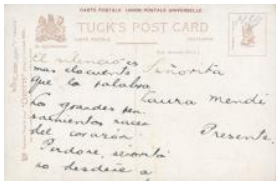 CARTE POSTALE UNION POSTALE UNIVERSELLE
TUCK'S POST CARD
CARTE POSTALE
El silencio es
mas elocuente
que la palabra
Los grandes pen-
samientos nacen
del corazón
Perdone, señorita
no desdeñe a
Señorita
Laura Mendé
Presente.